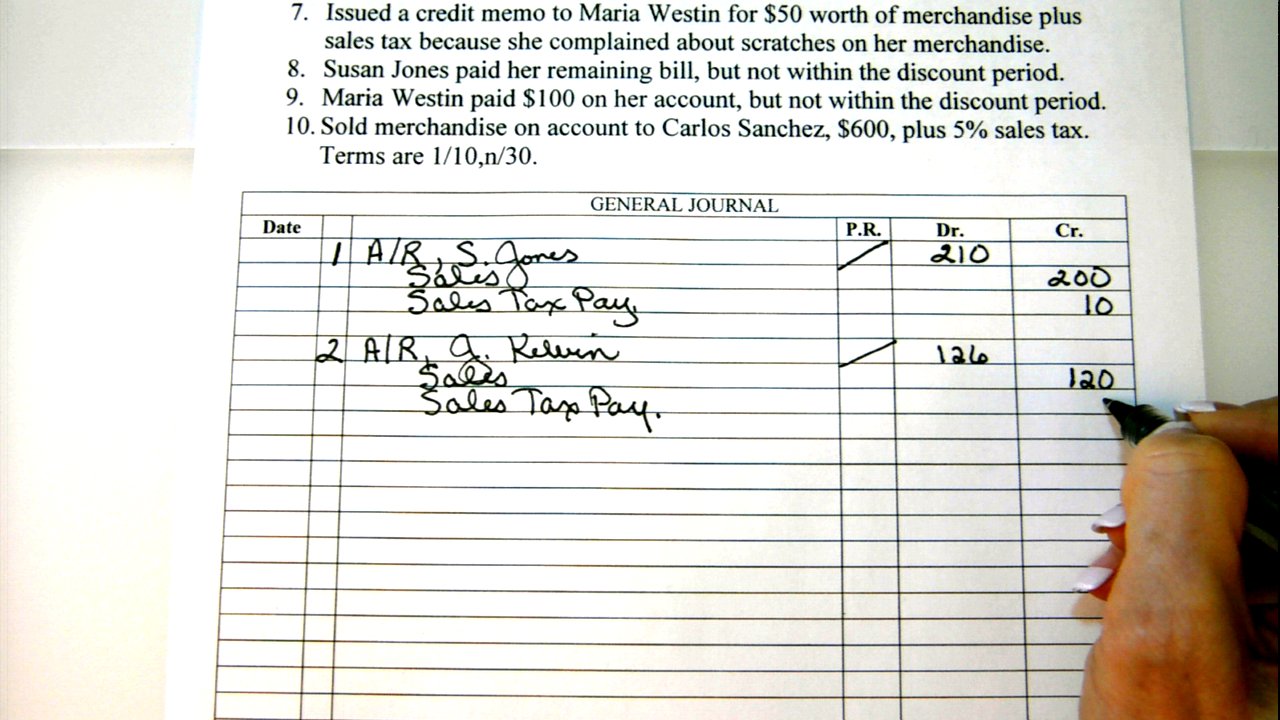 7. Issued a credit memo to Maria Westin for $50 worth of merchandise plus
sales tax because she complained about scratches on her merchandise.
8. Susan Jones paid her remaining bill, but not within the discount period.
9. Maria Westin paid $100 on her account, but not within the discount period.
10. Sold merchandise on account to Carlos Sanchez, $600, plus 5% sales tax.
Terms are 1/10,n/30.
GENERAL JOURNAL
Date P.R. Dr. Cr.
1 A/R, S. Jones 210
Sales 200
Sales Tax Pay. 10
2 A/R, J. Kelvin 126
Sales 120
Sales Tax Pay.